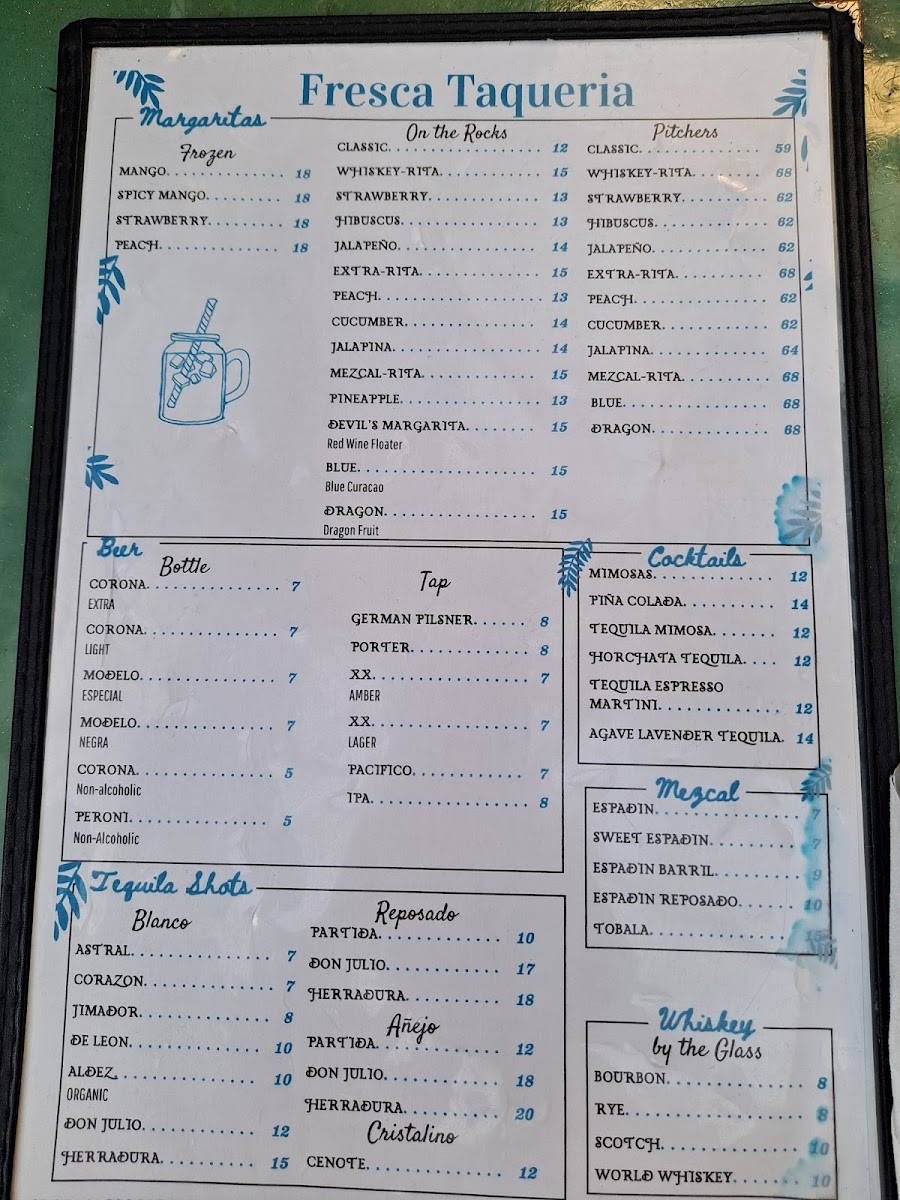 Fresca Taqueria
Margaritas
Frozen
MANGO. . . . . . . . . . . . 18
SPICY MANGO. . . . . . . . 18
STRAWBERRY. . . . . . . . 18
PEACH. . . . . . . . . . . . . 18
On the Rocks
CLASSIC. . . . . . . . . . . . . . . . 12
WHISKEY-RITA. . . . . . . . . . . 15
STRAWBERRY. . . . . . . . . . . . 13
HIBUSCUS. . . . . . . . . . . . . . . 13
JALAPEÑO. . . . . . . . . . . . . . . 14
EXTRA-RITA. . . . . . . . . . . . . 15
PEACH. . . . . . . . . . . . . . . . . . 13
CUCUMBER. . . . . . . . . . . . . . 14
JALAPINA. . . . . . . . . . . . . . . . 14
MEZCAL-RITA. . . . . . . . . . . . . 15
PINEAPPLE. . . . . . . . . . . . . . . 13
DEVIL'S MARGARITA. . . . . . . . 15
Red Wine Floater
BLUE. . . . . . . . . . . . . . . . . . . . 15
Blue Curacao
DRAGON. . . . . . . . . . . . . . . . . 15
Dragon Fruit
Pitchers
CLASSIC. . . . . . . . . . . . . 59
WHISKEY-RITA. . . . . . . . 68
STRAWBERRY. . . . . . . . . 62
HIBUSCUS. . . . . . . . . . . . 62
JALAPEÑO. . . . . . . . . . . . 62
EXTRA-RITA. . . . . . . . . . 68
PEACH. . . . . . . . . . . . . . . 62
CUCUMBER. . . . . . . . . . . 62
JALAPINA. . . . . . . . . . . . . 64
MEZCAL-RITA. . . . . . . . . . 68
BLUE. . . . . . . . . . . . . . . . 68
DRAGON. . . . . . . . . . . . . 68
Beer
Bottle
CORONA. . . . . . . . . . . . . . 7
EXTRA
CORONA. . . . . . . . . . . . . . 7
LIGHT
MODELO. . . . . . . . . . . . . . 7
ESPECIAL
MODELO. . . . . . . . . . . . . . 7
NEGRA
CORONA. . . . . . . . . . . . . . 5
Non-alcoholic
PERONI. . . . . . . . . . . . . . . 5
Non-Alcoholic
Tap
GERMAN PILSNER. . . . . . 8
PORTER. . . . . . . . . . . . . 8
XX. . . . . . . . . . . . . . . . . 7
AMBER
XX. . . . . . . . . . . . . . . . . 7
LAGER
PACIFICO. . . . . . . . . . . . 7
IPA. . . . . . . . . . . . . . . . . 8
Cocktails
MIMOSAS. . . . . . . . . . . . . 12
PIÑA COLADA. . . . . . . . . . 14
TEQUILA MIMOSA. . . . . . . 12
HORCHATA TEQUILA. . . . 12
TEQUILA ESPRESSO
MARTINI. . . . . . . . . . . . . 12
AGAVE LAVENDER TEQUILA. 14
Mezcal
ESPADIN. . . . . . . . . . . . . . 7
SWEET ESPADIN. . . . . . . . 7
ESPADIN BARRIL. . . . . . . . 9
ESPADIN REPOSADO. . . . . . 10
TOBALA. . . . . . . . . . . . . . . 15
Tequila Shots
Blanco
ASTRAL. . . . . . . . . . . . . . 7
CORAZON. . . . . . . . . . . . . 7
JIMADOR. . . . . . . . . . . . . 8
DE LEON. . . . . . . . . . . . . 10
ALDEZ. . . . . . . . . . . . . . . 10
ORGANIC
DON JULIO. . . . . . . . . . . . 12
HERRADURA. . . . . . . . . . 15
Reposado
PARTIDA. . . . . . . . . . . . . 10
DON JULIO. . . . . . . . . . . . 17
HERRADURA. . . . . . . . . . 18
Añejo
PARTIDA. . . . . . . . . . . . . 12
DON JULIO. . . . . . . . . . . . 18
HERRADURA. . . . . . . . . . 20
Cristalino
CENOTE. . . . . . . . . . . . . . 12
Whiskey
by the Glass
BOURBON. . . . . . . . . . . . . 8
RYE. . . . . . . . . . . . . . . . . 8
SCOTCH. . . . . . . . . . . . . . 10
WORLD WHISKEY. . . . . . . 10